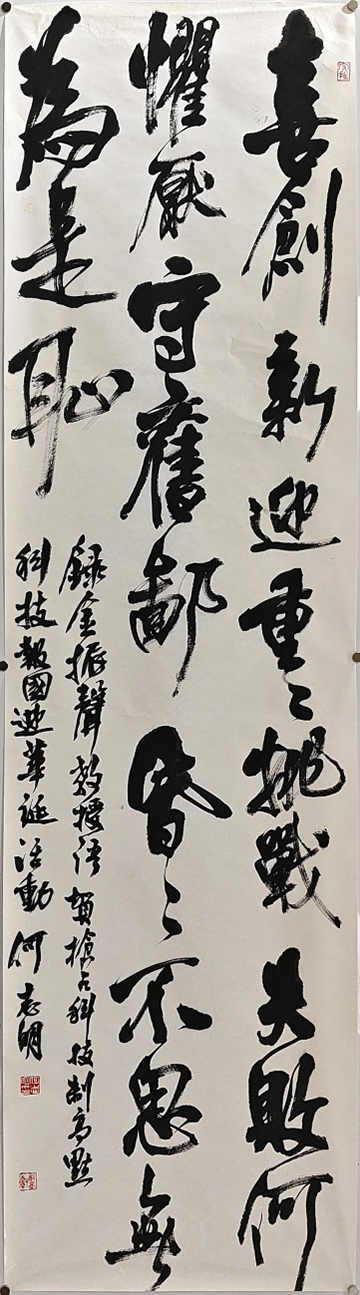 喜創新迎重〻挑戰失敗何
懼厭守舊鄙昏〻不思無
為是恥
錄金振聲教授語賀搶占科技制高點
科技報國迎華誕活動何志明